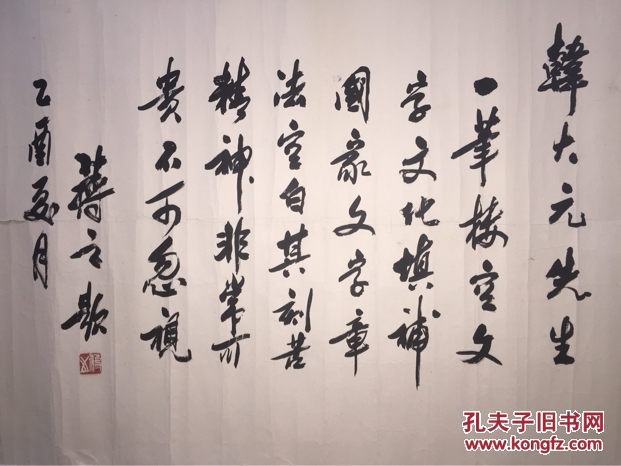 韓大元先生
一筆楼空文
字文化填補
國家文字章
法空白其刻苦
精神非常可
贵不可忽視
蒋之歌
乙酉夏月
孔夫子旧书网
www.kongfz.com